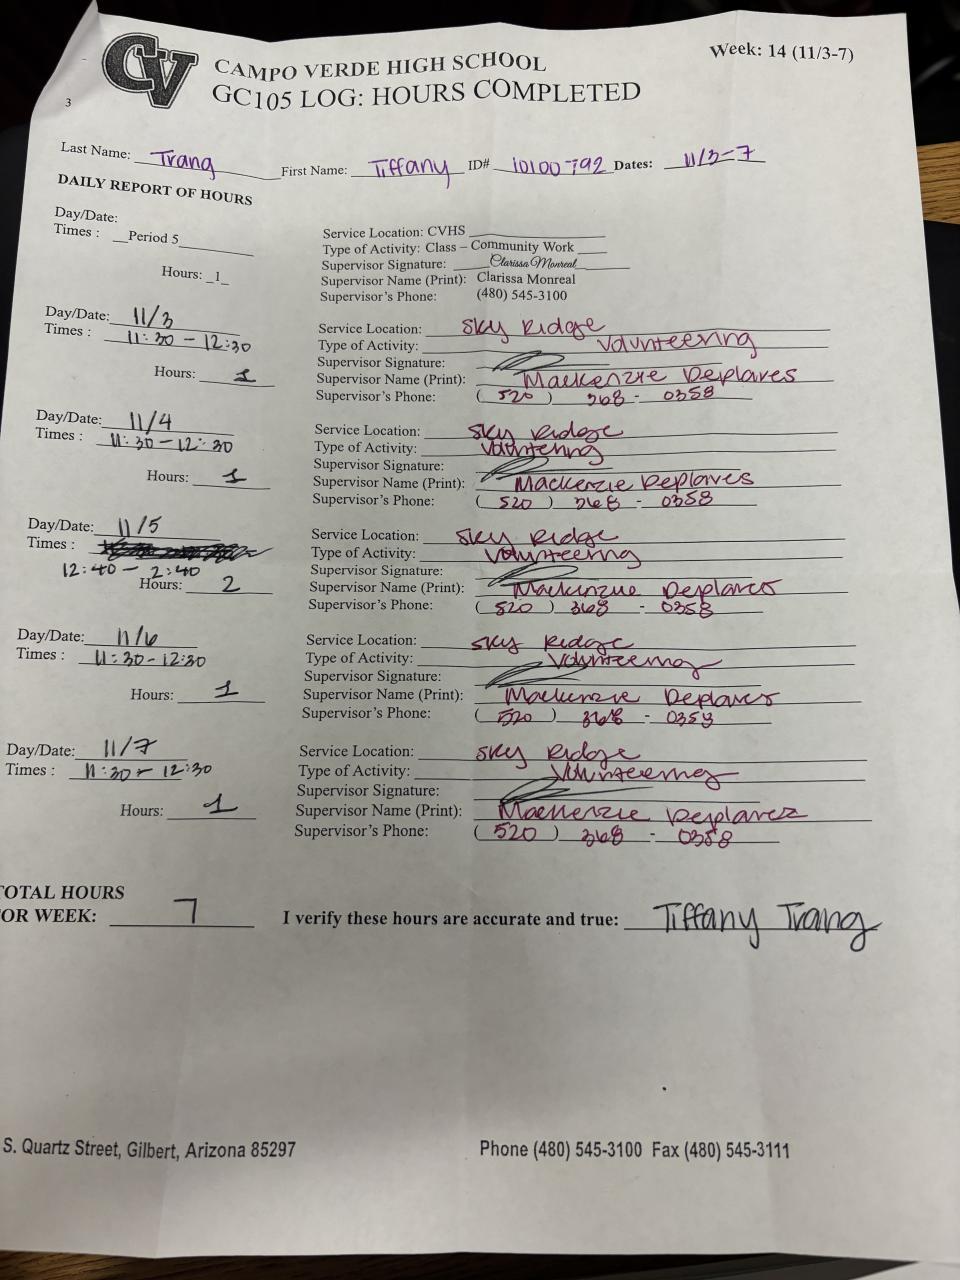 CV
CAMPO VERDE HIGH SCHOOL
Week: 14 (11/3-7)
GC105 LOG: HOURS COMPLETED
3
Last Name: Trang First Name: Tiffany ID# 10100792 Dates: 11/3-7
DAILY REPORT OF HOURS
Day/Date:
Times : __Period 5
Hours: _1_
Service Location: CVHS
Type of Activity: Class – Community Work
Supervisor Signature: Clarissa Monreal
Supervisor Name (Print): Clarissa Monreal
Supervisor's Phone: (480) 545-3100
Day/Date: 11/3
Times : 11:30 - 12:30
Hours: 1
Service Location: Sky Ridge
Type of Activity: Volunteering
Supervisor Signature:
Supervisor Name (Print): Mackenzie Desplaves
Supervisor's Phone: (520) 368 - 0358
Day/Date: 11/4
Times : 11:30 - 12:30
Hours: 1
Service Location: Sky Ridge
Type of Activity: Voluntering
Supervisor Signature:
Supervisor Name (Print): Mackenzie Desplaves
Supervisor's Phone: (520) 368 - 0358
Day/Date: 11/5
Times :
12:40 - 2:40
Hours: 2
Service Location: Sky Ridge
Type of Activity: Volunteering
Supervisor Signature:
Supervisor Name (Print): Mackenzie Desplaves
Supervisor's Phone: (520) 368 - 0358
Day/Date: 11/6
Times : 11:30 - 12:30
Hours: 1
Service Location: Sky Ridge
Type of Activity: Volunteering
Supervisor Signature:
Supervisor Name (Print): Mackenzie Desplaves
Supervisor's Phone: (520) 368 - 0358
Day/Date: 11/7
Times : 11:30 - 12:30
Hours: 1
Service Location: Sky Ridge
Type of Activity: Volunteering
Supervisor Signature:
Supervisor Name (Print): Mackenzie Desplaves
Supervisor's Phone: (520) 368 - 0358
TOTAL HOURS
FOR WEEK: 7
I verify these hours are accurate and true: Tiffany Trang
S. Quartz Street, Gilbert, Arizona 85297
Phone (480) 545-3100 Fax (480) 545-3111